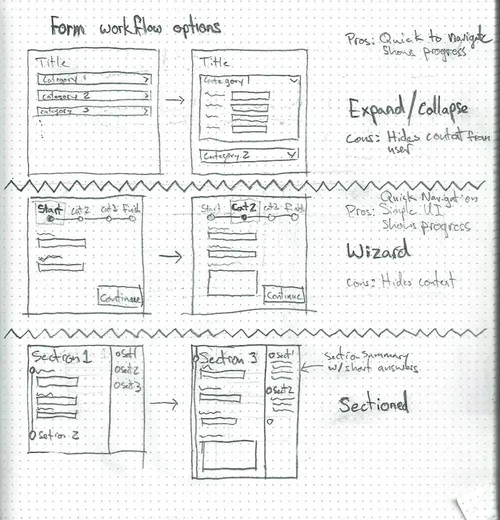 Form workflow options
Pros: Quick to navigate
Shows progress
Title
Category 1
Category 2
Category 3
Title
Category 1
Category 2
Expand/Collapse
Cons: Hides content from
user
Start Cat 2 Cat 3 Finish
Continue
Start Cat 2 Cat 3 Finish
Continue
Quick Navigation
Pros: Simple UI
Shows progress
Wizard
Cons: Hides content
Section 1
Section 2
Sect 1
Sect 2
Sect 3
Section 3
Sect 1
Sect 2
section summary
w/short answers
Sectioned